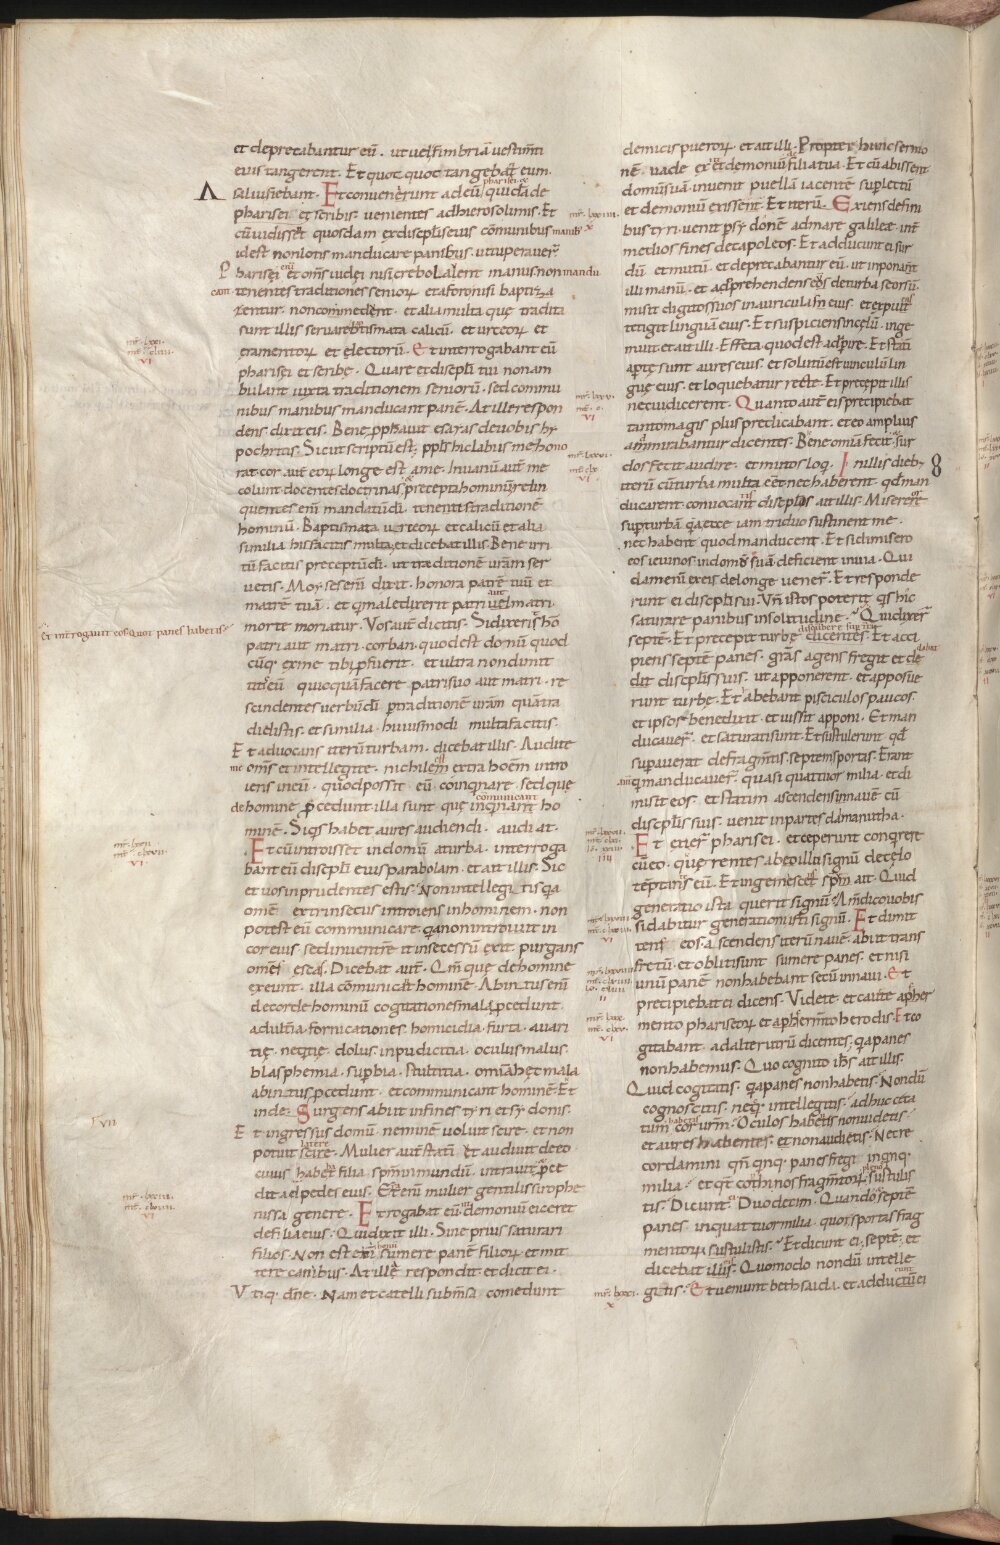 et deprecabantur eū. ut uel fimbriā uestim̄ti
eius tangerent. Et quot quot tangebāt eum.
salui fiebant. Et conuenerunt ad eū quidā de
pharisei. et scribis. uenientes ab hierosolimis. Et
cū uidissēt quosdam ex discipl̄is eius cōmunibus manib'
id est non lotis manducare panibus. uituperauer̄
Pharisęi enī et om̄s iudęi nisi crebo lauent manus non mandu
cant. tenentes traditiones senior̄. et a foro nisi baptiza
rentur. non commedent. et alia multa quę tradita
sunt illis seruare. babtismata calicū. et urceor̄ et
eramentor̄ et lectorū. Et interrogabant eū
pharisei et scribę. Quare et discipl̄i tui non am
bulant iuxta traditionem seniorū. sed commu
nibus manibus manducant panē. At ille respon
dens dixit eis. Bene pphauit esaias de uobis hy
pochritis. Sicut scriptū est. pplś hic labiis me hono
rat. cor aut̄ eor̄ longe est a me. In uanū aut̄ me
colunt. docentes doctrinas. precepta hominū. relin
quentes enī mandatū dī. tenentis traditionē
hominū. Baptismata urceor̄ et calicū et alia
similia his facitis multa. et dicebat illis. Bene irri
tū facitis preceptū dī. ut traditionē uram̄ ser
uetis. Moyses enī dixit. honora patrē tuū et
matrē tuā. et q̄ maledixerit patri uel matri.
morte moriatur. Vos aut̄ dicitis. Si dixerit hō
patri aut matri. corban. quod est donū quod
cūq; ex me tibi pfuerit. et ultra non dimit
titis eū quicquā facere patri suo aut matri. re
scindentes uerbū dī p traditionē uram̄ quā tra
didistis. et similia huiusmodi multa facitis.
Et aduocans iterū turbam. dicebat illis. Audite
me om̄s et intellegite. nichil est extra hoēm intro
iens in eū. quod possit eū coinqnare. sed quę
de homine pcedunt illa sunt quę communicant ho
minē. Siq̄s habet aures audiendi. audiat.
Et cū introisset in domū a turba. interroga
bant eū discipl̄i eius parabolam. et ait illis. Sic
et uos inprudentes estis. Non intellegitis q̄a
omē extrinsecus introiens in hominem. non
potest eū communicare. q̄a non introiuit in
cor eius. sed in uentrē. et in secessū exit. purgans
omēs escas. Dicebat aut̄. Qm̄ quę de homine
exeunt. illa cōmunicāt hominē. Ab intus enī
de corde hominū cogitationes malę pcedunt.
adultīa. fornicationes. homicidia. furta. auari
tię. neqtię. dolus. inpudicitia. oculus malus
blasphemia. supbia. stultitia. omīa hęc mala
ab intus pcedunt. et communicant hominē. Et
inde. Surgens abiit in fines tyri et sydonis.
Et ingressus domū neminē uoluit scire. et non
potuit latere. Mulier aut̄ statī ut audiuit de eo
cuius habebat filia spm̄ inmundū. intrauit. pce
dit ad pedes eius. Erat enī mulier gentilis sirophe
nissa genere. Et rogabat eū ut demoniū eiceret
de filia eius. Qui dixit illi. Sine prius saturari
filios. Non est enī bonū sumere panē filior̄ et mit
tere canibus. At illa respondit. et dicit ei.
Vtiq; dnē. Nam et catelli sub m̄sa comedunt
de micis pueror̄. et ait illi. Propter hunc sermo
nē. uade. exiit demoniū de filia tua. Et cū abisset
domū suā. inuenit puellā iacentē sup lectū
et demoniū exissent. Et iterū. Exiens de fini
bus tyri. uenit p sydonē ad mare galileę. int̄
medios fines decapoleos. Et adducunt ei sur
dū et mutū. et deprecabantur eū. ut inponant
illi manū. et adprehendens eū de turba seorsū.
misit digitos suos in auriculam eius. et expuit
tetigit linguā eius. Et suspiciens in cęlū. inge
muit. et ait illi. Effeta. quod est adpire. Et statī
aptę sunt aures eius. et solutū est uinculū lin
guę eius. et loquebatur recte. Et precepit illis
ne cui dicerent. Quanto aut̄ eis precipiebat
tanto magis plus predicabant. et eo amplius
ammirabantur dicentes. Bene omīa fecit. sur
dos fecit audire. et mutos loq. In illis dieb;
iterū cū turba multa eēt. nec haberent qd̄ man
ducarent. conuocatis discipl̄os ait illis. Misereor
sup turbam. q̄a ecce iam triduo sustinent me.
nec habent quod manducent. Et si dimisero
eos ieiunos in domū suā. deficient in uia. Qui
dam enī ex eis de longe uener̄. Et responde
runt ei discipl̄i sui. Vn̄ istos poterit q̄s hic
saturare panibus in solitudine. Qui dixer̄
septē. Et precepit turbę discumbere sup terrā. Et acci
piens septē panes. gratias agens fregit et de
dit discipl̄is suis. ut apponerent. et apposue
runt turbę. Et habebant pisciculos paucos.
et ipsos benedixit. et iussit apponi. Et man
ducauer̄. et saturati sunt. Et sustulerunt qd̄
supauerat de fragm̄tis. septem sportas. Erant
aut̄ q̄ manducauer̄. quasi quattuor milia. et di
misit eos. et statim ascendens in nauē cū
discipl̄is suis. uenit in partes dalmanutha.
Et exier̄ pharisei. et ceperunt conqrere
cū eo. quęrentes ab eo illi signū de cęlo
temptantes eū. Et ingemescēs spū ait. Quid
generatio ista querit signū. Am̄ dico uobis
si dabitur generationi isti signū. Et dimit
tens eos. ascendens iterū nauē. abiit trans
fretū. et obliti sunt sumere panes. et nisi
unū panē non habebant secū in naui. Et
precipiebat ei dicens. Videte. et cauete a pher
mento phariseor̄. et a pherm̄to herodis. Et co
gitabant. ad alterutrū dicentes. q̄a panes
non habemus. Quo cognito ihs̄ ait illis.
Quid cogitatis. q̄a panes non habetis. Nondū
cognoscitis. neq; intellegitis. adhuc ceca
tum habetis cor urm̄. Oculos habentes non uidetis.
et aures habentes. et non auditis. Nec re
cordamini. qn̄ qnq; panes fregi in qnq;
milia. et qt̄ cophinos fragm̄tor̄ plenos sustulis
tis. Dicunt ei. Duodecim. Quando et septē
panes in quattuor milia. quot sportas frag
mentor̄ sustulistis. Et dicunt ei. septē. et
dicebat illis. Quomodo nondū intelle
gitis. Et ueniunt bethsaida. et adducunt ei
et interrogauit eos. quot panes habetis.
8